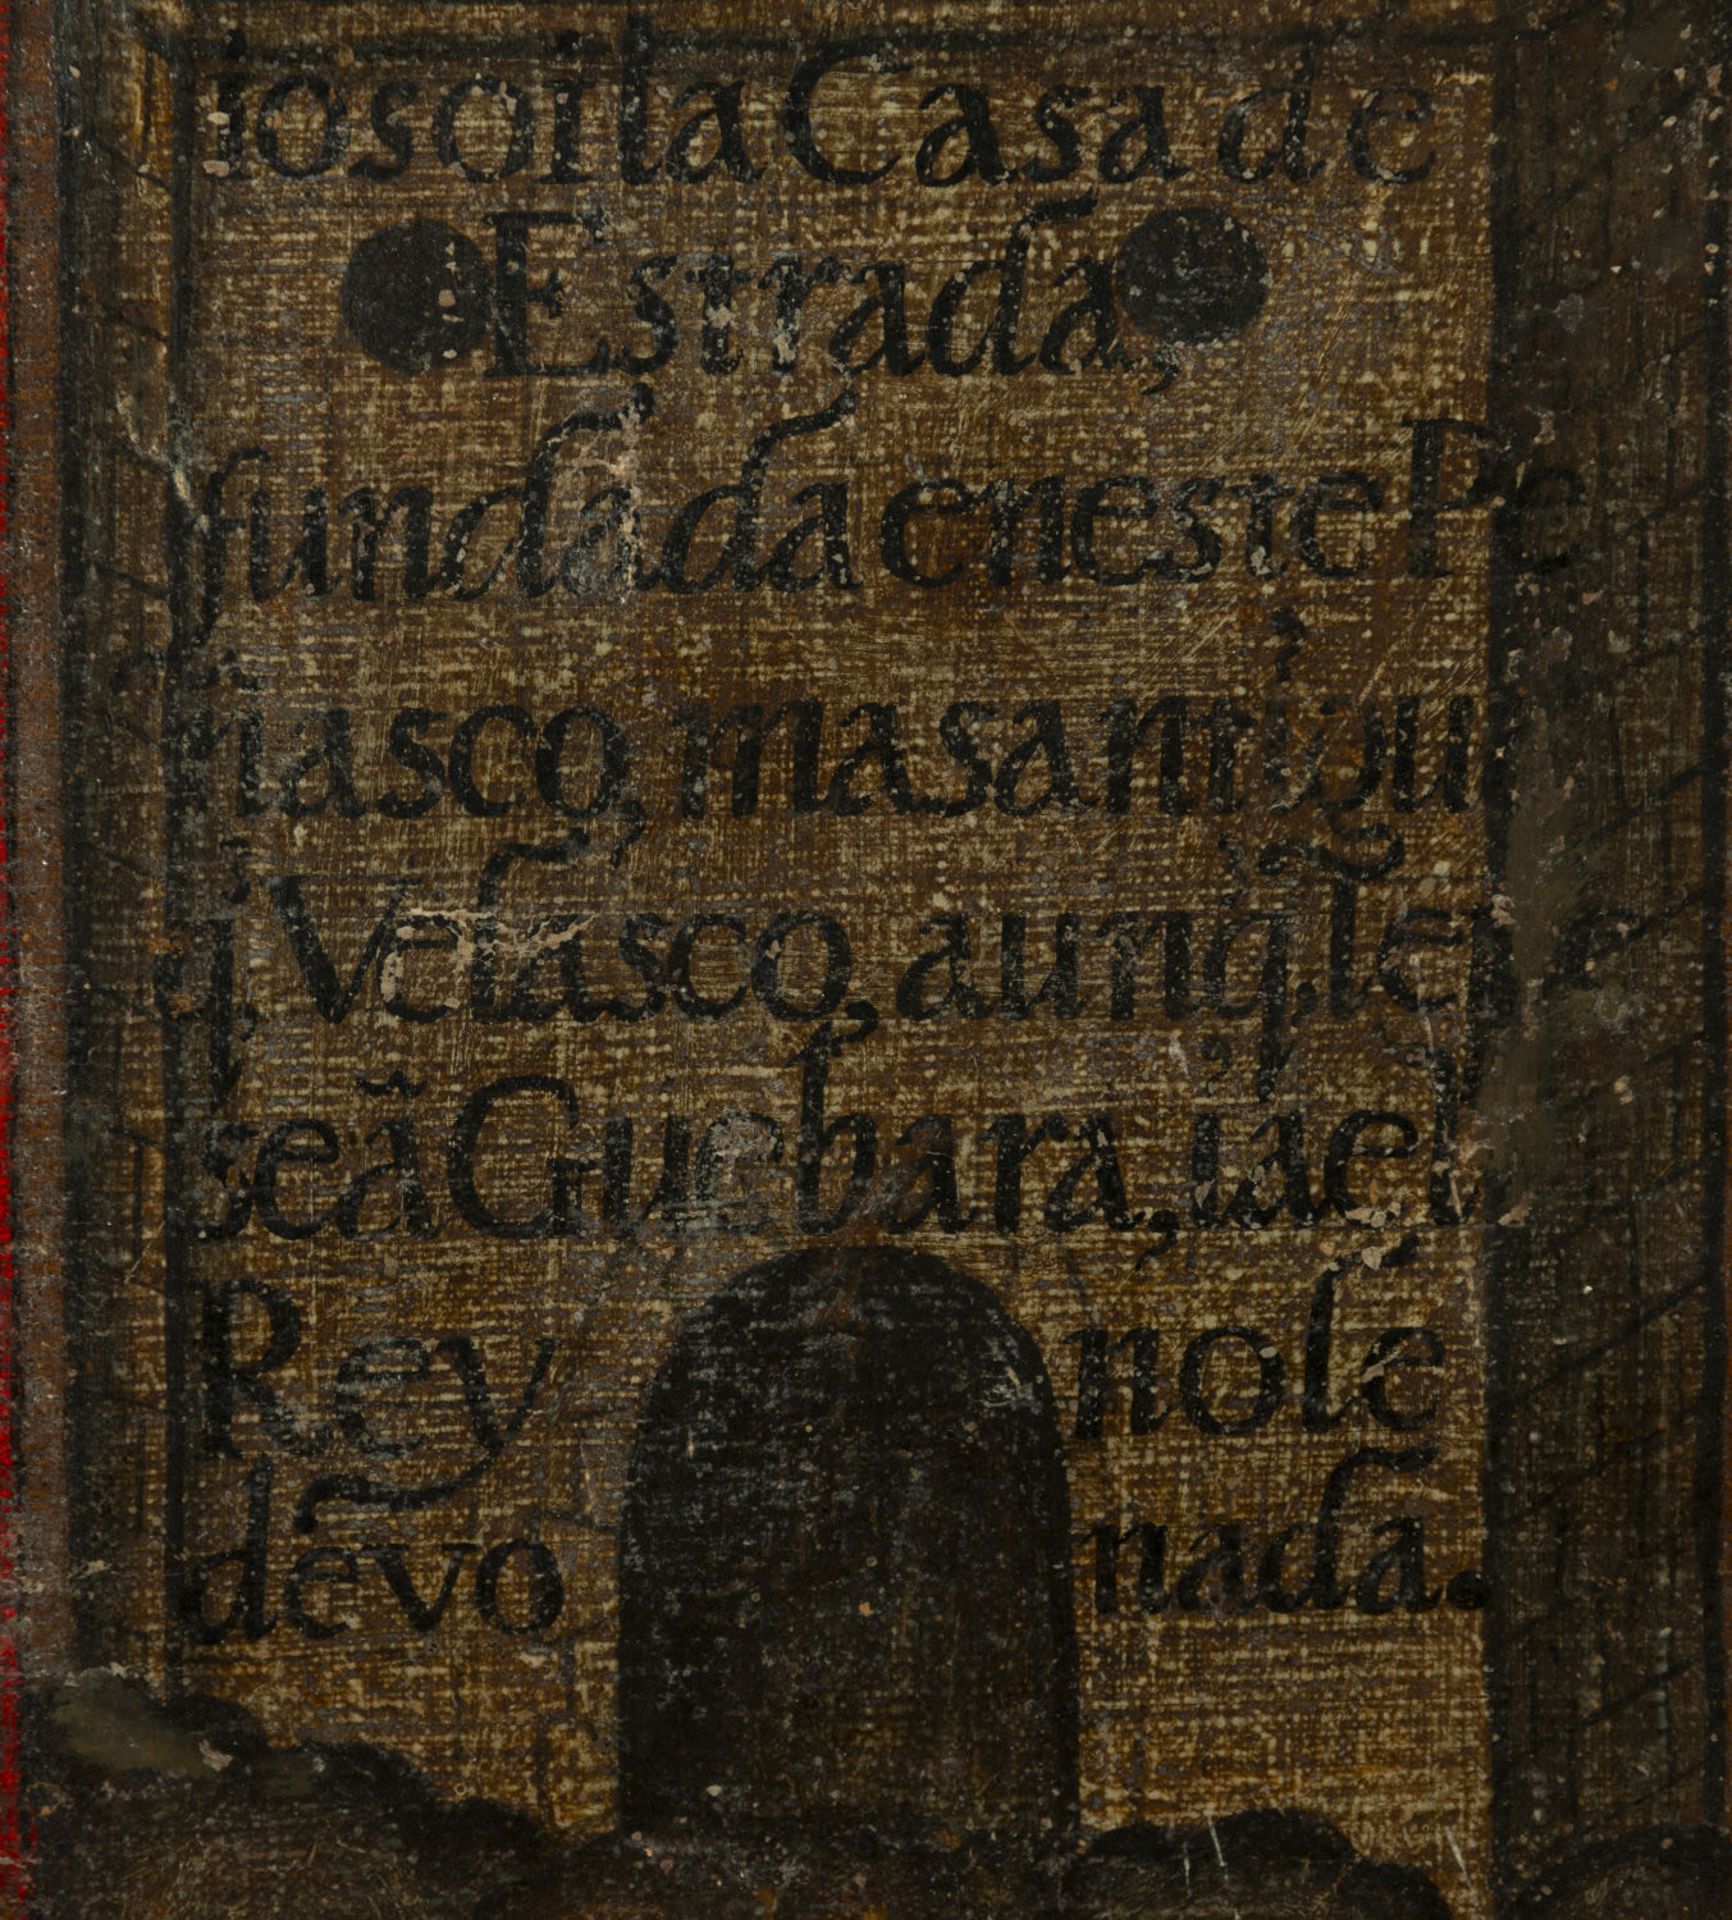 io soi la Casa de
Estrada,
fundada en este Pe
ñasco, mas antigua
q. Velasco, aunq. le pe
se á Guebara, i a el
Rey no le
devo nada.